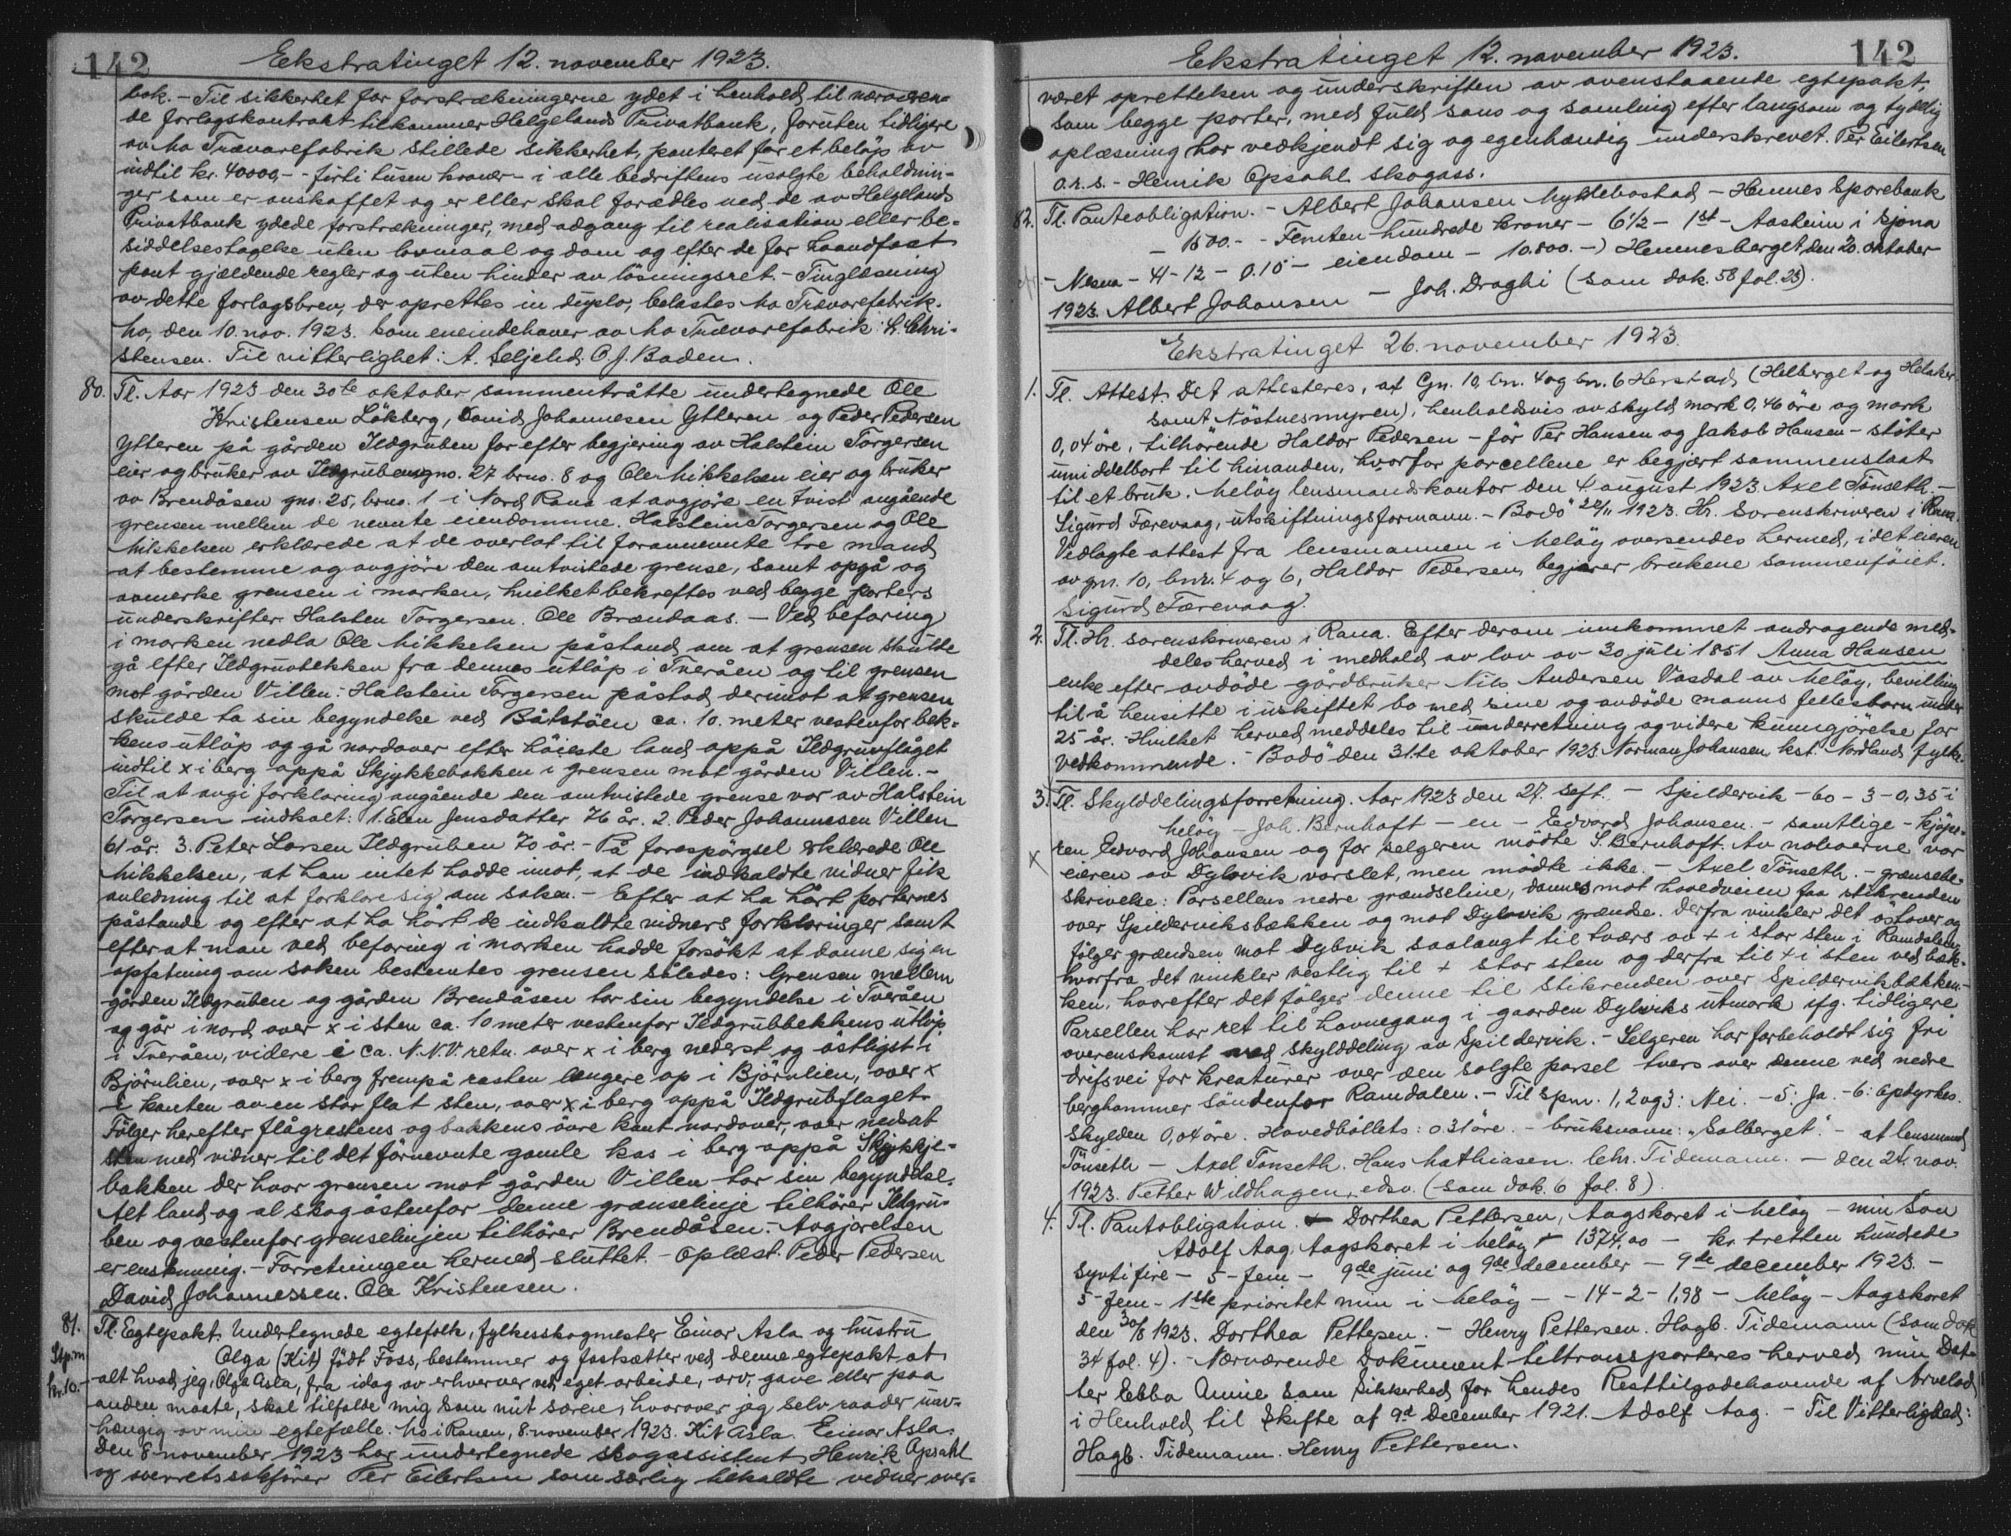 142
Ekstratinget 12. november 1923.
bok. - Til sikkerhet for forstrækningerne ydet i henhold til næroæren-
de forlagskontrakt tilkommer Helgelands Privatbank, foruten tidligere
av Mo Trævarefabrik stillede sikkerhet, panteret for et beløp av
indtil kr. 40000,- - førti tusen kroner - i alle bedriftens usolgte beholdnin-
ger som er anskaffet og er eller skal forædles ved de av Helgelands
Privatbank ydede forstrækninger, med adgang til realisation eller be-
siddelsestagelse uten lovmaal og dom og efter de for haandfaat
pant gjældende regler og uten hinder av løsningsret - Tinglæsning
av dette forlagsbrev, der oprettes in duplo, belastes Mo Trævarefabrik.
Mo, den 10. nov. 1923. Som eneindehaver av Mo Trævarefabrik: H. Chri-
stensen. Til vitterlighet: A. Seljelid. O J. Baden.
80. Tl. Aar 1923 den 30te oktober sammentråtte undertegnede Ole
Kristensen Løkberg, David Johannesen Ytteren og Peder Pedersen
Ytteren på gården Ildgruben for efter begjering av Halstein Torgersen
eier og bruker av Ildgruben gno. 27 brno. 8 og Ole Mikkelsen eier og bruker
av Brendåsen gno. 25, brno. 1 i Nord Rana at avgjøre en tvist angående
grensen mellem de nevnte eiendomme. Halstein Torgersen og Ole
Mikkelsen erklærede at de overlot til forannevnte tre mand
at bestemme og avgjöre den omtvistede grense, samt opgå og
avmerke grensen i marken, hvilket bekreftes ved begge parters
underskrifter Halsten Torgersen. Ole Brændaas. - Ved befaring
i marken nedla Ole Mikkelsen påstand om at grensen skulde
gå efter Ildgruvbekken fra dennes utløp i Tveråen og til grensen
mot gården Villen: Halstein Torgersen påstod derimot at grensen
skulde ta sin begyndelse ved Båtstöen ca. 10. meter vestenfor bek-
kens utløp og gå nordover efter höieste land oppå Ildgruvflåget
indtil x i berg oppå Skjykkebakken i grensen mot gården Villen. -
Til at avgi forklaring angående den omtvistede grense var av Halstein
Torgersen indkalt: 1. Elen Jensdatter 76 år. 2. Peder Johannesen Villen
61 år. 3. Peter Larsen Ildgruben 70 år. - På forespörgsel erklærede Ole
Mikkelsen, at han intet hadde imot, at de indkaldte vidner fik
anledning til at forklare sig om saken. - Efter at ha hørt parternes
påstande og efter at ha hört de indkaldte vidners forklaringer samt
efter at man ved befaring i marken hadde forsøkt at danne sig en
opfatning om saken bestemtes grensen således: Grensen mellem
gården Ildgruben og gården Brendåsen tar sin begyndelse i Tveråen
og går i nord over x i sten ca. 10 meter vestenfor Ildgrubbekkens utløp
i Tveråen, videre i ca. N.N.V. retn. over x i berg nederst og østligst i
Björnlien, over x i berg frempå rasten længere op i Björnlien, over x
i kanten av en stor flat sten, over x i berg oppå Ildgrubflaget
Fölger herefter flågrastens og bakkens övre kant nordover, over nedsat
sten med vidner til det förnevnte gamle kas i berg oppå Skjykkje-
bakken der hvor grensen mot gården Villen tar sin begyndelse.
Alt land og al skog östenfor denne grænselinje tilhörer Ildgru-
ben og vestenfor grenselinjen tilhörer Brendåsen. - Avgjørelsen
er enstemmig. - Forretningen hermed sluttet. - Oplæst. Peder Pedersen
David Johannessen. Ole Kristensen.
81. Tl. Egtepakt. Undertegnede egtefolk, fylkesskogmester Einar Asla og hustru
Stpm. Olga (Kit) födt Foss, bestemmer og fastsætter ved denne egtepakt at
kr. 10.- alt hvad jeg, Olga Asla, fra idag av erhverver ved eget arbeide, arv, gave eller paa
anden maate, skal tilfalde mig som mit særeie, hvorover jeg selv raader uav-
hængig av min egtefælle. Mo i Ranen, 8. november 1923. Kit Asla. Einar Asla.
Den 8 november 1923 har undertegnede skogassistent Henrik Opsahl
og overretssakfører Per Eilertsen som særlig tilkaldte vidner over-
142
Ekstratinget 12. november 1923.
været oprettelsen og underskriften av ovenstaaende egtepakt,
som begge parter, med fuld sans og samling efter langsom og tydelig
oplæsning har vedkjendt sig og egenhændig underskrevet. Per Eilertsen
o.r.s. - Henrik Opsahl skogass.
82. Tl. Panteobligation. - Albert Johansen Myklebostad - Hemnes Sparebank
- 1500.- - Femten hundrede kroner - 6½ - 1ste - Aasheim i Sjona
- Nesna - 41-12 - 0.15 - eiendom - 10.800. -) Hemnesberget, den 20. oktober
1923. Albert Johansen - Joh. Draghi (som dok. 58 fol. 25).
Ekstratinget 26. november 1923.
1. Tl. Attest. Det attesteres, at Gn. 10, bn. 4 og bn. 6 Herstad, (Helberget og Helaker
samt Nöstnesmyren), henholdsvis av skyld mark 0,46 öre og mark
0,04 öre, tilhörende Haldor Pedersen - för Per Hansen og Jakob Hansen - stöter
umiddelbart til hinanden, hvorfor parcellene er begjært sammenslaat
til et bruk. Melöy lensmandskontor den 4 august 1923. Axel Tönseth. -
Sigurd Færevaag, utskiftningsformann. - Bodö 20/11 1923. Hr. Sorenskriveren i Rana.
Vedlagte attest fra lensmannen i Melöy oversendes hermed, idet eieren
av gn. 10, bnr. 4 og 6, Haldor Pedersen, begjærer brukene sammenföiet.
Sigurd Færevaag.
2. Tl. Hr. sorenskriveren i Rana. Efter derom innkommet andragende med-
deles herved i medhold av lov av 30 juli 1851 Anna Hansen
enke efter avdöde gårdbruker Nils Andersen Vasdal av Melöy, bevilling
til å hensitte i uskiftet bo med sine og avdöde manns fellesbarn under
25 år. Hvilket herved meddeles til underretning og videre kunngjörelse for
vedkommende. - Bodö den 31.te oktober 1923 Norman Johansen kst. Nordland fylke.
3. Tl. Skylddelingsforretning. Aar 1923 den 27. sept. - Spildervik - 60 - 3 - 0,35 i
Melöy - Joh. Bernhoft - en - Edvard Johansen. - samtlige - kjöpe-
x ren Edvard Johansen og for selgeren mödte S. Bernhoft. Av naboerne var
eieren av Dybvik varslet, men mödte ikke. - Axel Tönseth. - grænsebe-
skrivelse: Parsellens nedre grændseline, dannes mot hovedveien fra stikrenden
over Spildervikbækken og mot Dybvik grændse. Derfra vinkler det östover og
følger grændsen mot Dybvik saalangt til tværs av + i stor sten i Ramdalen
hvorfra det vinkler vestlig til + stor sten og derfra til + i sten ved bæk-
ken, hvorefter det fölger denne til stikrenden over Spildervikbækken. -
Parsellen har ret til havnegang i gaarden Dybviks utmark ifg. tidligere
overenskomst med skylddeling av Spildervik. - Selgeren har forbeholdt sig fri
drifsvei for kreaturer over den solgte parsel tvers over denne ved nedre
berghammer söndenfor Ramdalen. - Til spm. 1, 2 og 3: Nei. - 5: Ja. - 6: Opdyrkes.
Skylden 0,04 öre. Hovedböllets: 0 31 öre. - bruksnavn: „Solberget". - at lensmand
Tönseth - Axel Tonseth. Hans Mathiasen. Chr. Tidemann. - den 24. nov.
1923. Pether Wildhagen, edsv. (som dok. 6 fol. 8).
4. Tl. Pantobligation. Dorthea Pettersen, Aagskaret i Melöy - min Son
Adolf Aag, Aagskaret i Melöy - 1374,00 - kr. tretten hundrede
syvti fire - 5 - fem - 9de juni og 9de december - 9de december 1923. -
5 - fem - 1ste prioritet min i Melöy - - 14 - 2 - 1,98 - Melöy - Aagskaret
den 30/6 1923. Dorthea Pettersen. - Henry Pettersen. Hagb. Tidemann (som dok
34 fol. 4). - Nærværende Dokument tiltransporteres herved min Dat-
ter Ebba Annie som Sikkerhed for hendes Resttilgodehavende af Arvelod
i Henhold til Skifte af 9d December 1921. Adolf Aag. - Til Vitterlighed:
Hagb. Tidemann. Henry Pettersen.